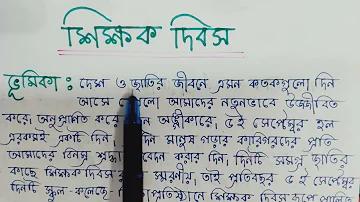 শিক্ষক দিবস
ভূমিকা: দেশ ও জাতির জীবনে এমন কতকগুলো দিন
আসে আমাদের নতুনভাবে উজ্জীবিত
করে, অনুপ্রাণিত করে অঙ্গীকারে, ৫ই সেপ্টেম্বর হল
এরকমই একটি দিন মানুষ গড়ার কারিগরদের প্রতি
আমাদের বিনম্র শ্রদ্ধা নিবেদন করার দিন। দিনটি সমগ্র জাতির
কাছে শিক্ষক দিবস স্মরণীয়, তাই প্রতিবছর ৫ই সেপ্টেম্বর
দিনটি স্কুল-কলেজে শিক্ষক দিবস রূপে পালিত